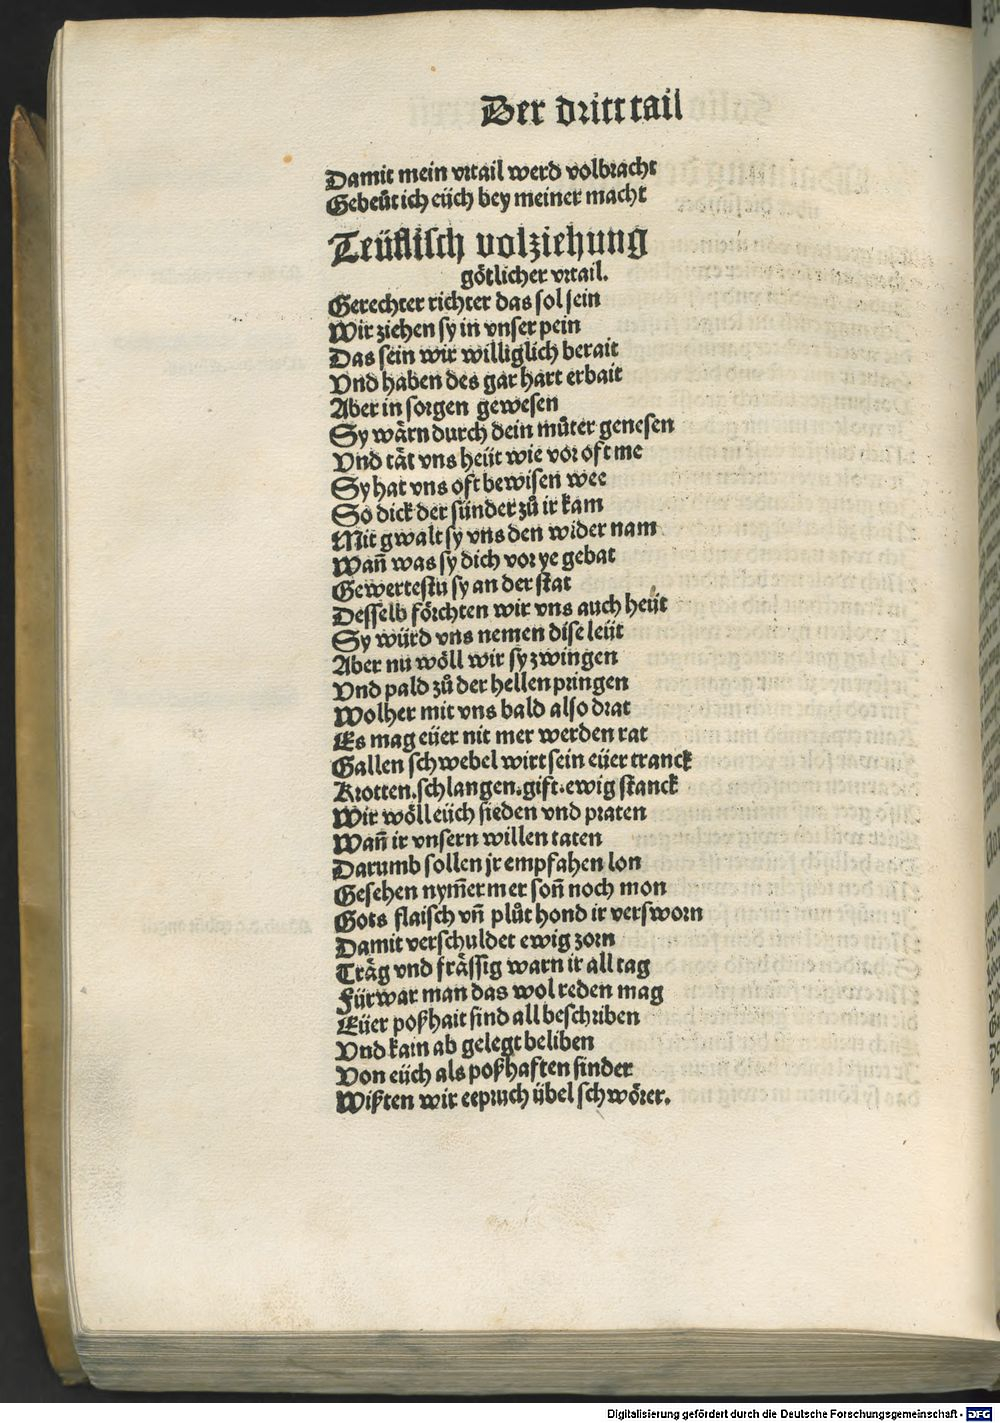 Der dritt tail
Damit mein vrtail werd volbracht
Gebeüt ich eüch bey meiner macht
Teüflisch volziehung
götlicher vrtail.
Gerechter richter das sol sein
Wir ziehen sy in vnser pein
Das sein wir williglich berait
Vnd haben des gar hart erbait
Aber in sorgen gewesen
Sy wärn durch dein můter genesen
Vnd tät vns heüt wie vor oft me
Sy hat vns oft bewisen wee
So dick der sünder zů ir kam
Mit gwalt sy vns den wider nam
Wañ was sy dich vor ye gebat
Gewertestu sy an der stat
Desselb förchten wir vns auch heüt
Sy würd vns nemen dise leüt
Aber nu wöll wir sy zwingen
Vnd pald zů der hellen pringen
Wolher mit vns bald also drat
Es mag eüer nit mer werden rat
Gallen schwebel wirt sein eüer tranck
Krotten.schlangen.gift.ewig stanck
Wir wöll eüch sieden vnd praten
Wañ ir vnsern willen taten
Darumb sollen jr empfahen lon
Gesehen nym̄er mer soñ noch mon
Gots flaisch vñ plůt hond ir versworn
Damit verschuldet ewig zorn
Träg vnd frässig warn ir all tag
Fürwar man das wol reden mag
Eüer poßhait sind all beschriben
Vnd kain ab gelegt beliben
Von eüch als poßhaften sinder
Wißten wir eepruch übel schwörer.
Digitalisierung gefördert durch die Deutsche Forschungsgemeinschaft - DFG